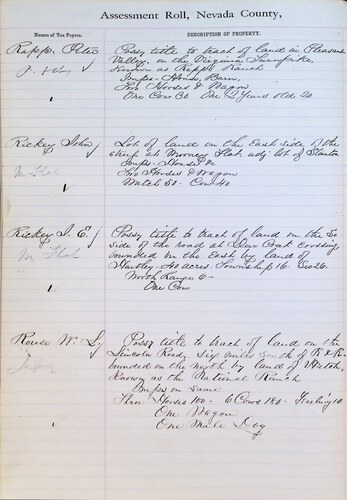 Assessment Roll, Nevada County,
Names of Tax Payers.
DESCRIPTION OF PROPERTY.
Rapp, Peter
Possy title to tract of land in Pleasant
Valley, on the Virginia Turnpike,
Known as Rapps Ranch
Imps- House, Barn,
Two Horses & Wagon
One Cow 30 One 2 Years old 20
Rickey John
Lot of land on the East side of the
street at Mooney Flat, adj lot of Stanton
Imps- House
Two Horses & Wagon
Watch 50- Cow 40
Rickey J. E.
Possy title to tract of land on the So
side of the road at Deer Creek crossing,
bounded on the East by land of
40 acres. Township 16. Sec 26.
North Range 6-
One Cow
Rouse W. Sy
Possy title to tract of land on the
Lincoln Road, Six miles South of R & R-
bounded on the north by land of
Known as the National Ranch
Imps on same
Three Horses 100- 6 Cows 180-
One Wagon
One Male Dog